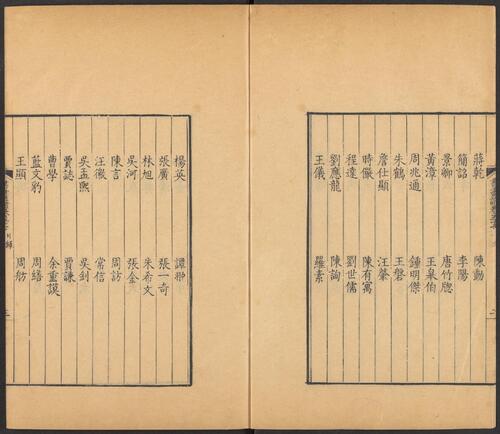 蔣乾 陳勳
簡詔 李陽
景卿 唐竹牕
黃漳 王臬伯
周兆通 鍾明傑
朱鶴 王磐
詹仕顯 汪肇
時儼 陳有寓
程達 劉世儒
劉應龍 陳詢
王儀 羅素
楊英 譚翀
張廣 張一奇
林旭 朱希文
吳河 張金
陳言 周訪
汪徽 常信
吳孟熙 吳釗
賈誌 賈謙
曹學 余重謨
藍文豹 周繕
王顯 周舫
目錄 三